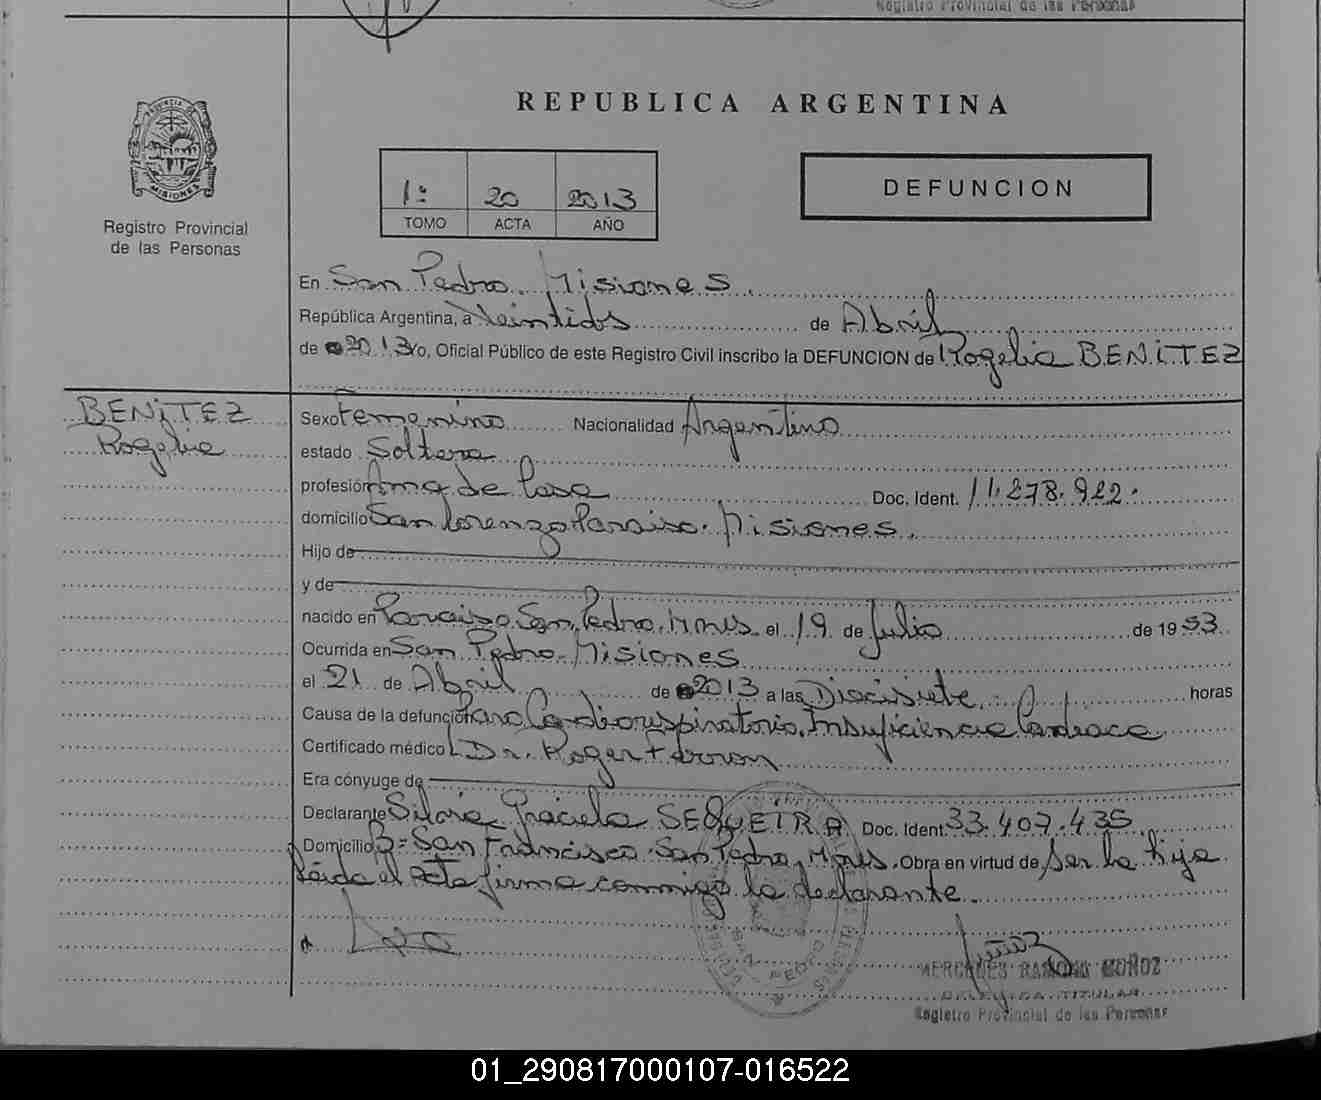 Registro Provincial de las Personas
REPUBLICA ARGENTINA
PROVINCIA DE
MISIONES
Registro Provincial
de las Personas
1º 20 2013
TOMO ACTA AÑO
DEFUNCION
En San Pedro. Misiones.
República Argentina, a Veintidos de Abril
de 2013 yo, Oficial Público de este Registro Civil inscribo la DEFUNCION de Rogelia BENiTEZ
BENiTEZ
Rogelia
Sexo femenino Nacionalidad Argentina
estado Soltera
profesión Ama de Casa Doc. Ident. 11.278.922.
domicilio San Lorenzo Paraiso. Misiones.
Hijo de
y de
nacido en Paraiso. San Pedro. Mnes. el 19 de Julio de 1953.
Ocurrida en San Pedro. Misiones
el 21 de Abril de 2013 a las Diecisiete horas
Causa de la defunción Paro Cardiorespiratorio. Insuficiencia Cardiaca
Certificado médico Dr. Roger Ferron
Era cónyuge de
Declarante Silvia Graciela SEQUEIRA Doc. Ident. 33.407.435
Domicilio Bº San Francisco. San Pedro, Mnes. Obra en virtud de Ser la hija
Leida el acta firma conmigo la declarante.
SAN PEDRO
MERCEDES RAMONA MUÑOZ
DELEGADA TITULAR
Registro Provincial de las Personas
01_290817000107-016522